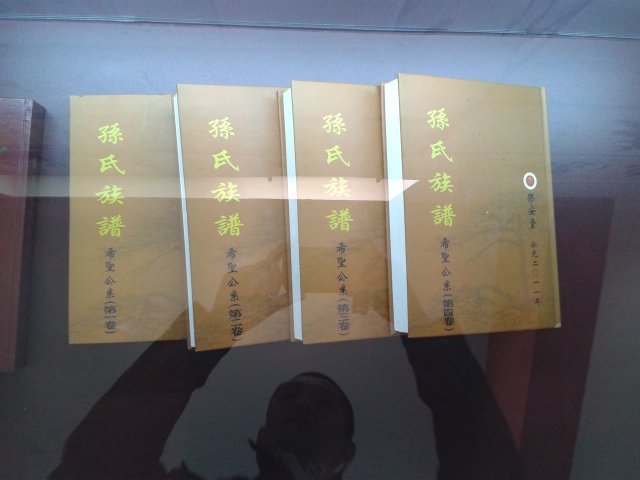 孫氏族譜
希聖公系(第一卷)
孫氏族譜
希聖公系(第二卷)
孫氏族譜
希聖公系(第三卷)
孫氏族譜
希聖公系(第四卷)
樂安堂
公元二〇一一年